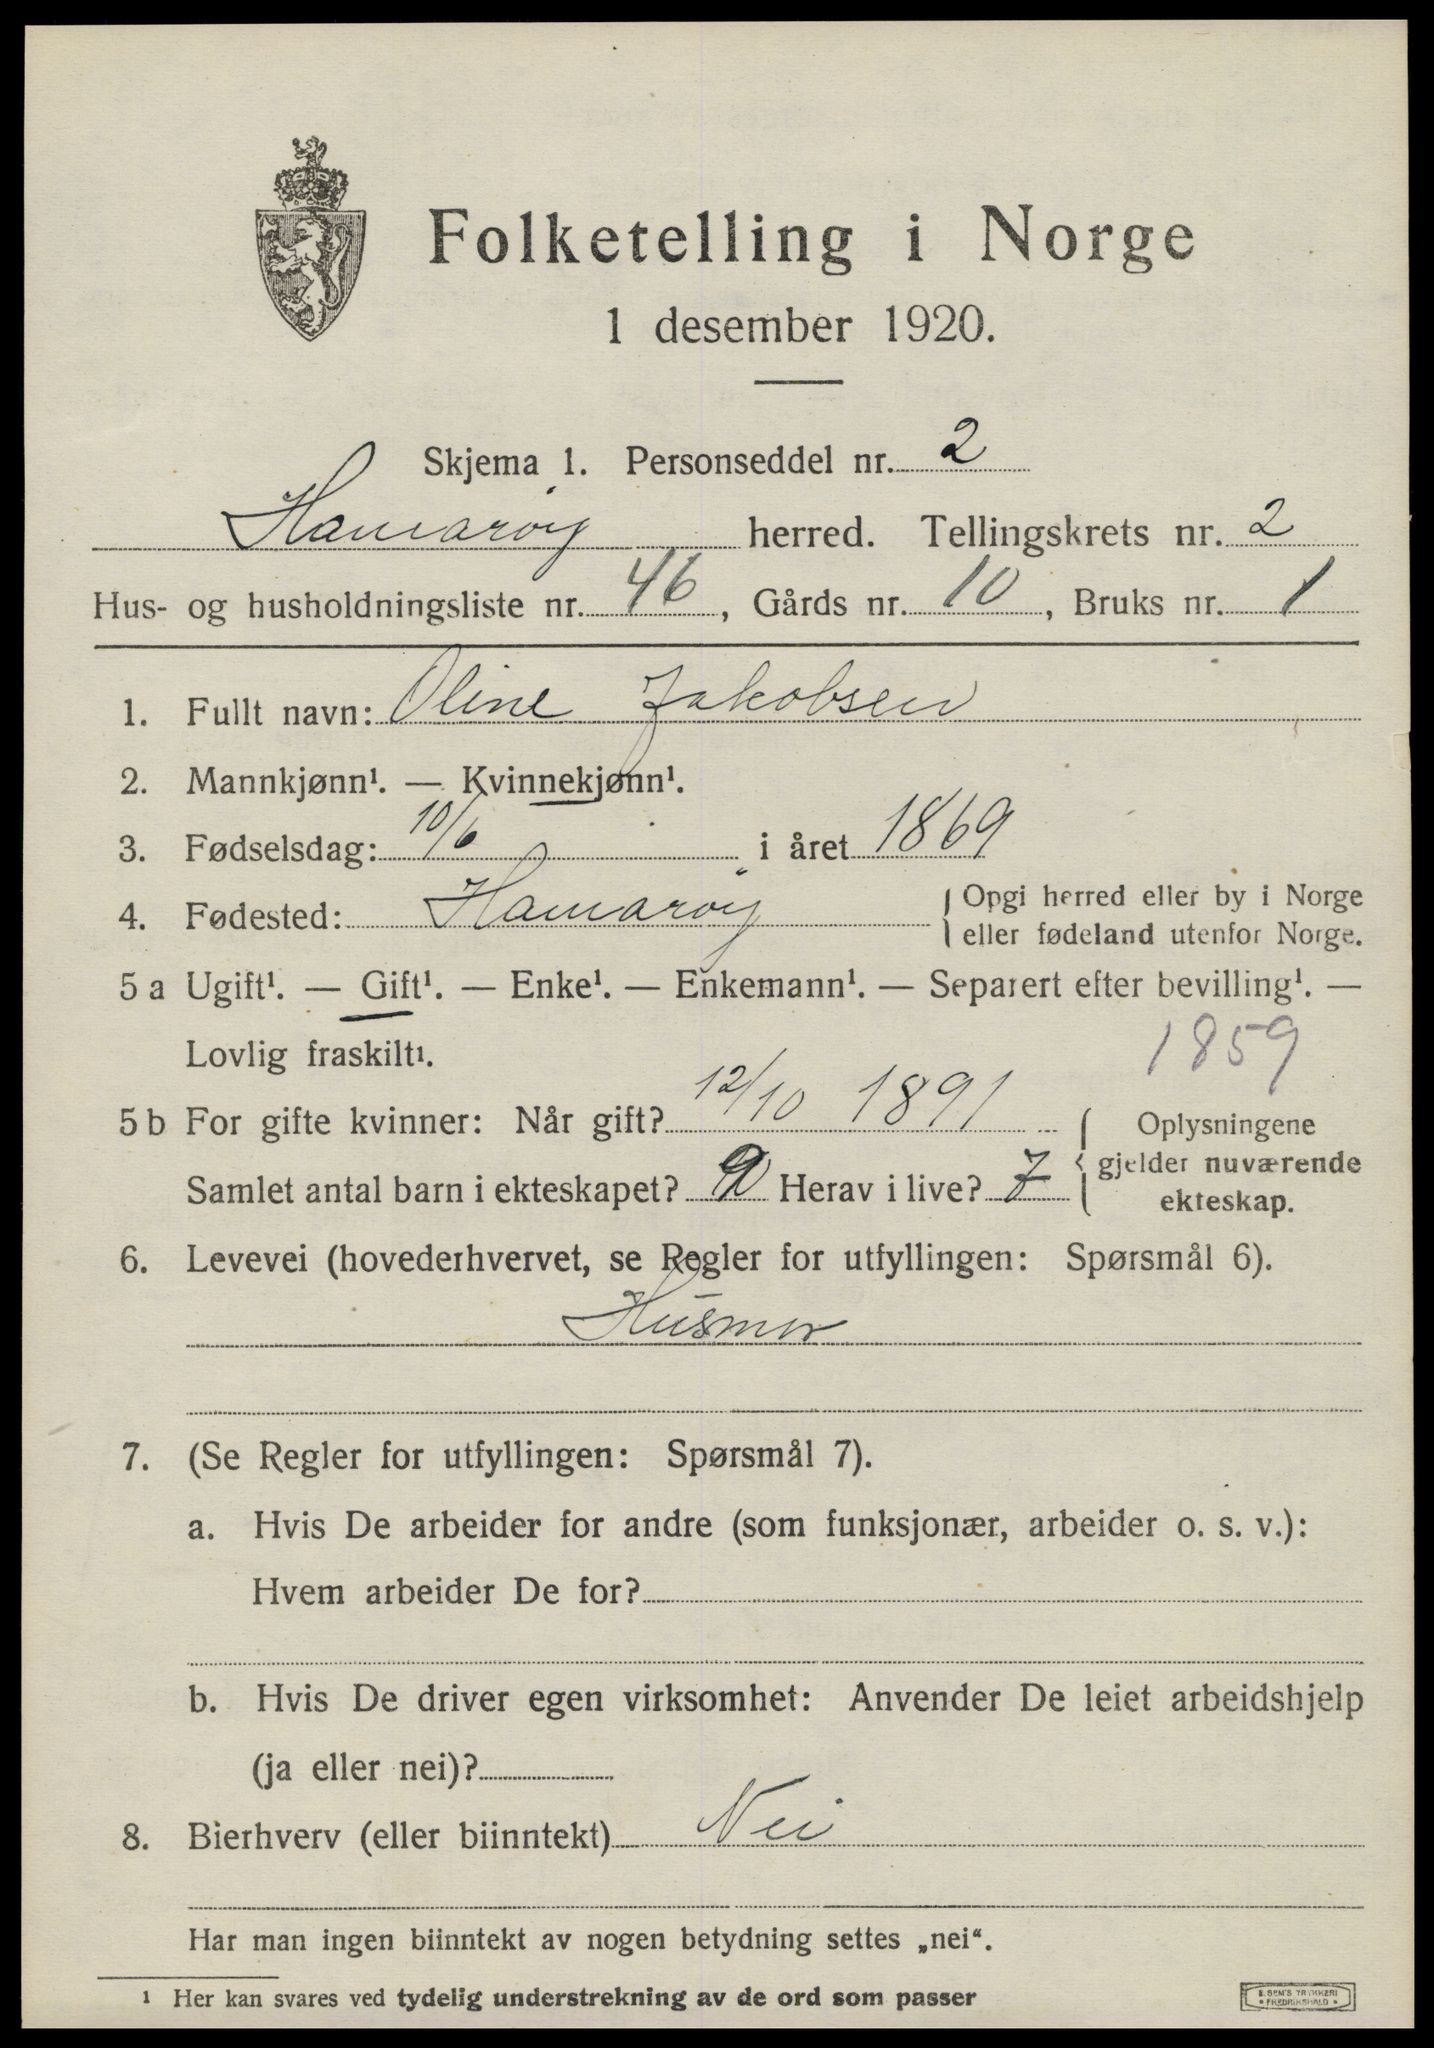 Folketelling i Norge
1 desember 1920.
Skjema 1. Personseddel nr. 2
Hamarøy herred. Tellingskrets nr. 2
Hus- og husholdningsliste nr. 46, Gårds nr. 10, Bruks nr. 1
1. Fullt navn: Oline Jakobsen
2. Mannkjønn¹. — Kvinnekjønn¹.
3. Fødselsdag: 10/6 i året 1869
4. Fødested: Hamarøy { Opgi herred eller by i Norge
eller fødeland utenfor Norge.
5 a Ugift¹. — Gift¹. — Enke¹. — Enkemann¹. — Separert efter bevilling¹. —
Lovlig fraskilt¹.
1859
5 b For gifte kvinner: Når gift? 12/10 1891
Samlet antal barn i ekteskapet? 9 Herav i live? 7
{ Oplysningene
gjelder nuværende
ekteskap.
6. Levevei (hovederhvervet, se Regler for utfyllingen: Spørsmål 6).
Husmor
7. (Se Regler for utfyllingen: Spørsmål 7).
a. Hvis De arbeider for andre (som funksjonær, arbeider o. s. v.):
Hvem arbeider De for?
b. Hvis De driver egen virksomhet: Anvender De leiet arbeidshjelp
(ja eller nei)?
8. Bierhverv (eller biinntekt) Nei
Har man ingen biinntekt av nogen betydning settes „nei“.
¹ Her kan svares ved tydelig understrekning av de ord som passer
E. SEM'S TRYKKERI
• FREDRIKSHALD •